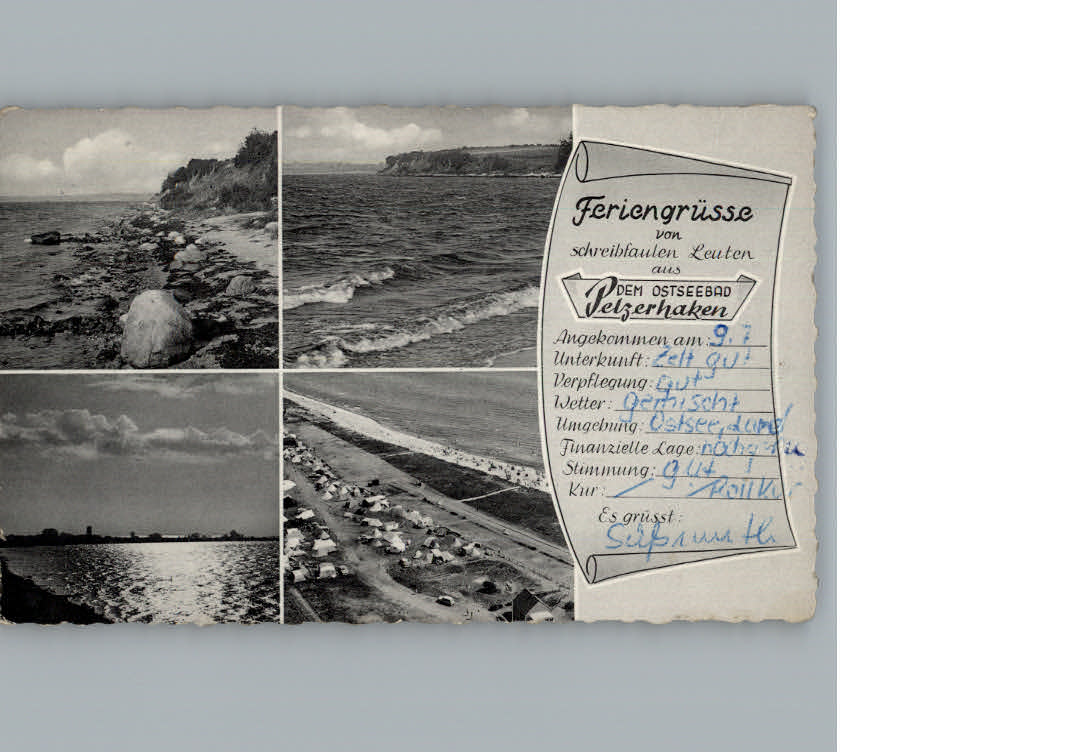 Feriengrüsse
von
schreibfaulen Leuten
aus
DEM OSTSEEBAD
Pelzerhaken
Angekommen am: 9.7
Unterkunft: Zelt gut
Verpflegung: gut
Wetter: gemischt
Umgebung: Ostsee, Land
Finanzielle Lage:
Stimmung: gut !
Kur: Rollkur
Es grüsst: